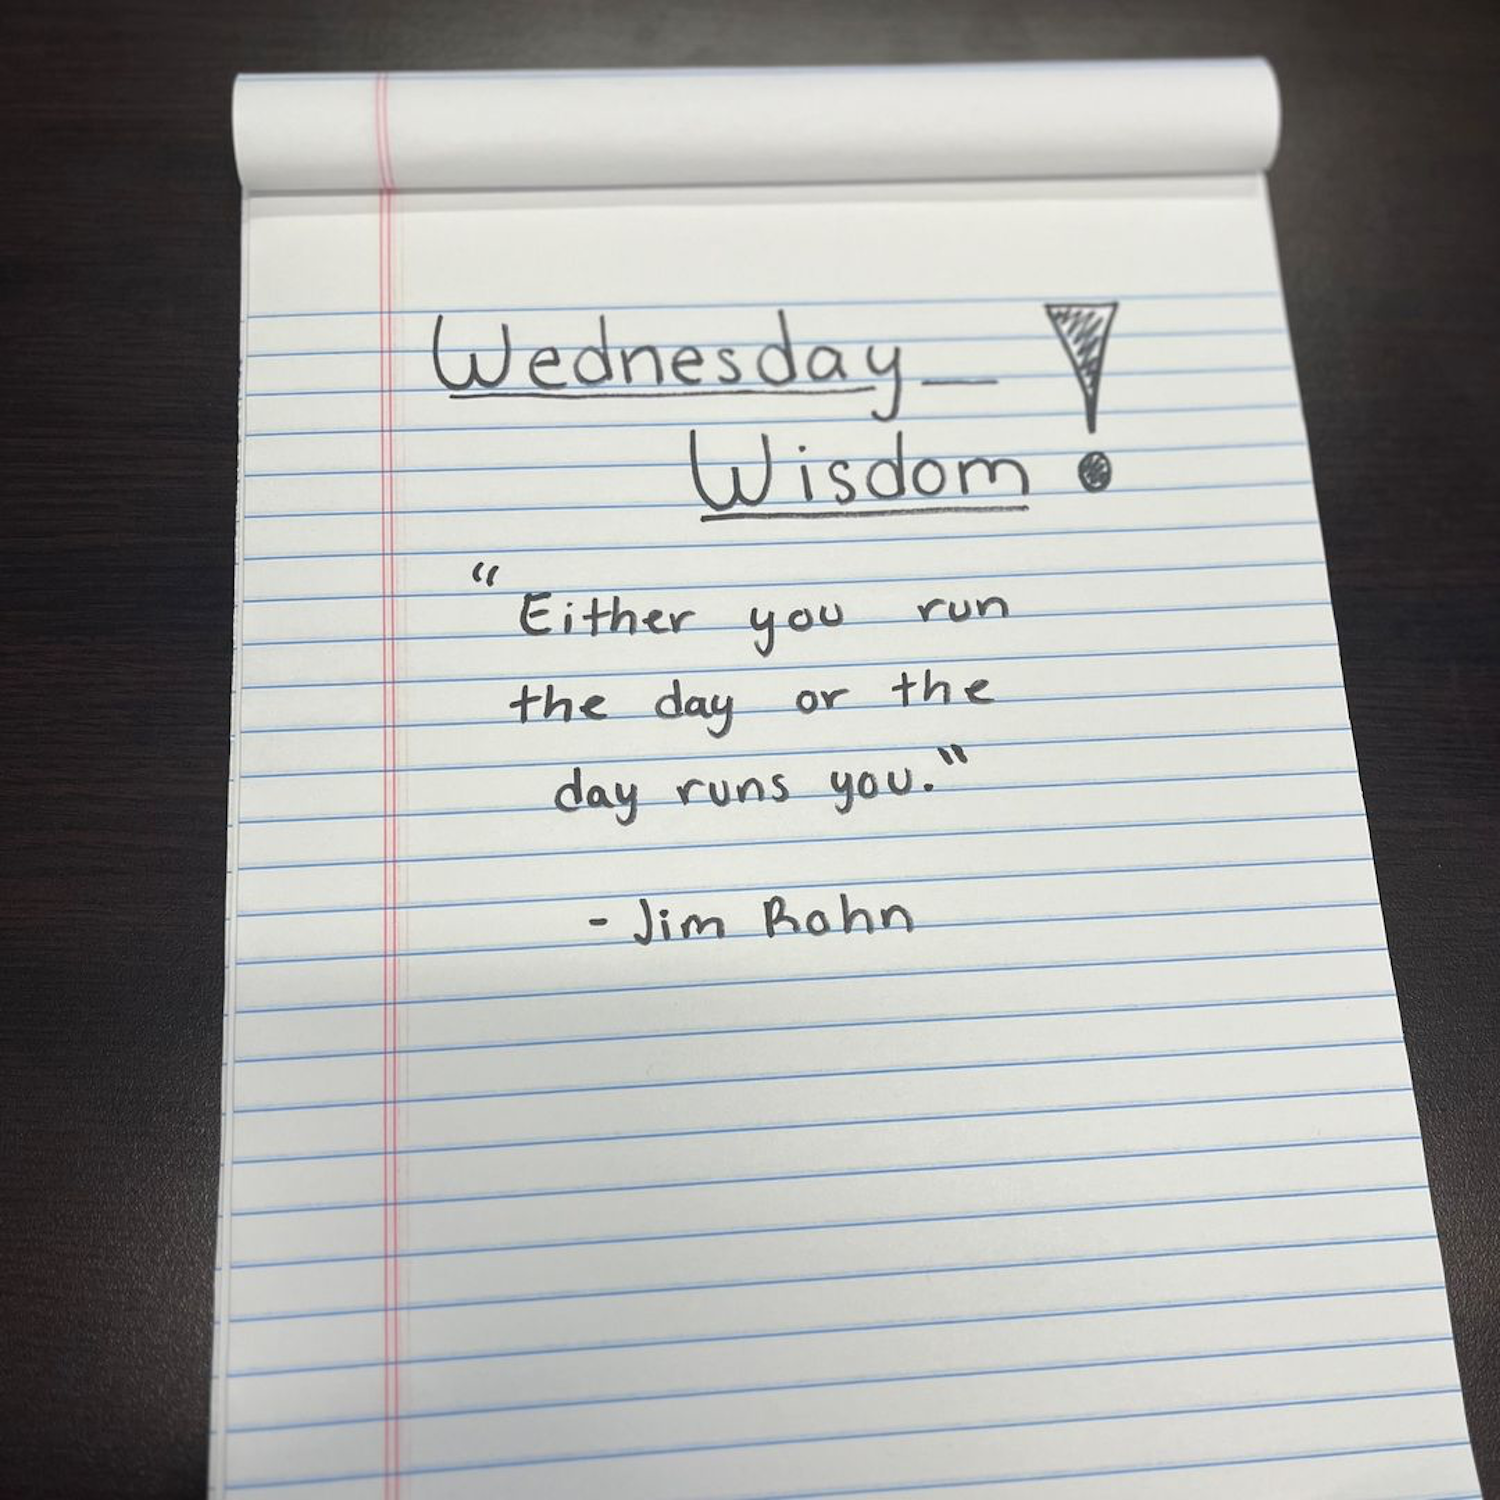 Wednesday_
Wisdom!
"Either you run
the day or the
day runs you."
- Jim Rohn